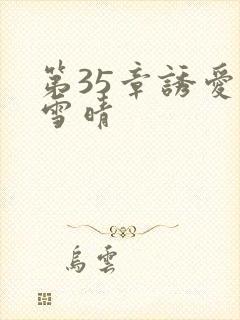 第35章誘愛
雪晴
烏雲